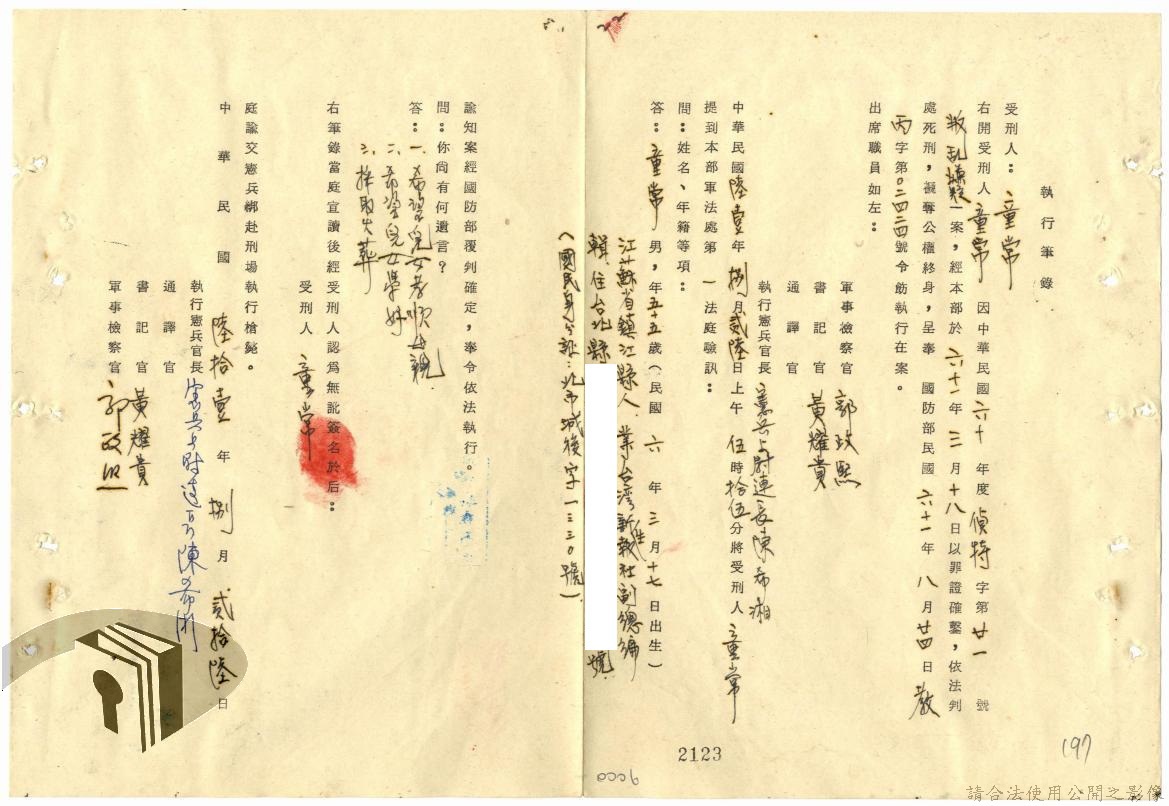 執行筆錄
受刑人：童常
右開受刑人童常因中華民國六十年度偵特字第廿一號
叛亂嫌疑一案，經本部於六十一年三月十八日以罪證確鑿，依法判
處死刑，褫奪公權終身，呈奉 國防部民國六十一年八月廿四日
丙字第〇二四二四號令飭執行在案。
出席職員如左：
軍事檢察官 郭政熙
書記官 黃耀貴
通譯官
執行憲兵官長 憲兵上尉連長陳希湘
中華民國陸壹年捌月貳陸日上午伍時拾伍分將受刑人童常
提到本部軍法處第一法庭驗訊：
問：姓名、年籍等項：
答：童常男，年五十五歲（民國六年三月十七日出生）
江蘇省鎮江縣人，業台灣新生報社副總編
輯，住台北縣 號
（國民身分證：北市城後字一三三〇號）
諭知案經國防部覆判確定，奉令依法執行。
問：你尚有何遺言？
答：一、希望兒女孝順母親
二、希望兒女學好
三、採取火葬
右筆錄當庭宣讀後經受刑人認為無訛簽名於后：
受刑人 童常
庭諭交憲兵綁赴刑場執行槍斃。
中華民國陸拾壹年捌月貳拾陸日
執行憲兵官長 憲兵上尉連長陳希湘
通譯官
書記官 黃耀貴
軍事檢察官 郭政熙
2123
197
請合法使用公開之影像